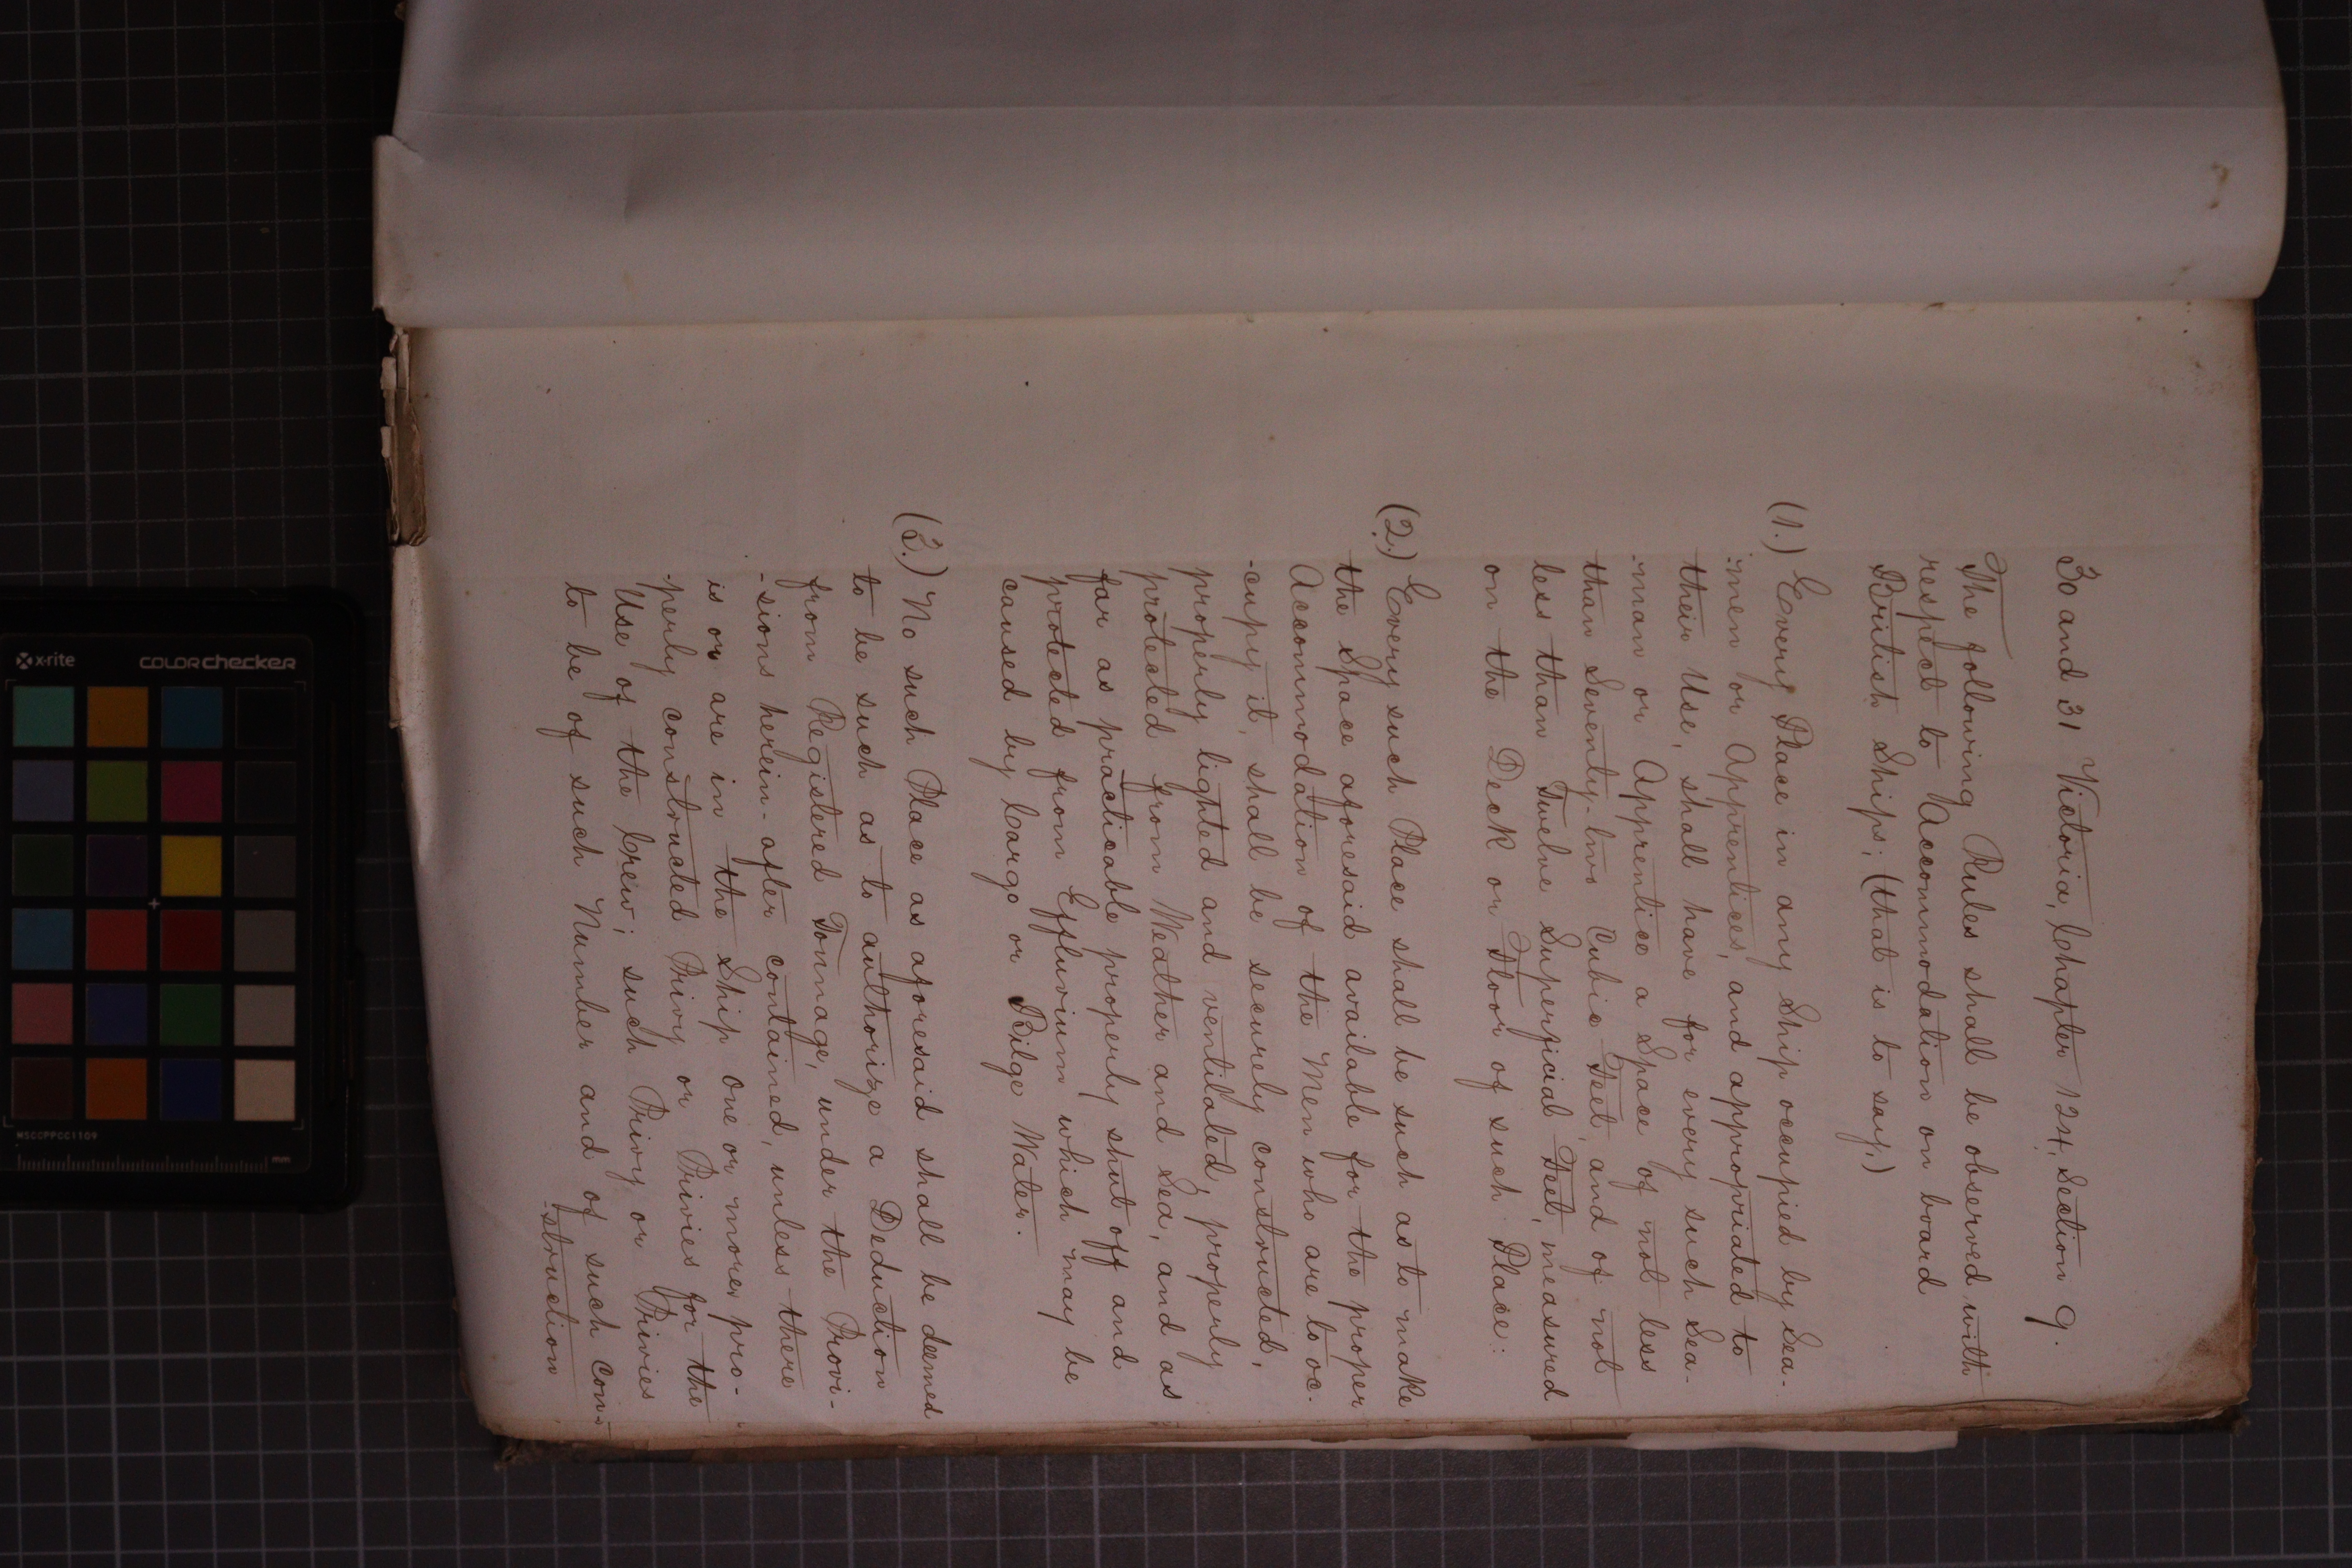 30 and 31 Victoria, Chapter 124, Section 9.
The following Rules shall be observed with
respect to Accommodation on board
British Ships; (that is to say,)
(1.) Every Place in any Ship occupied by Sea-
-men or Apprentices, and appropriated to
their Use, shall have for every such Sea-
-man or Apprentice a Space of not less
than Seventy-two Cubic Feet, and of not
less than Twelve Superficial Feet, measured
on the Deck or Floor of such Place:
(2.) Every such Place shall be such as to make
the Space aforesaid available for the proper
Accommodation of the Men who are to oc-
-cupy it, shall be securely constructed,
properly lighted and ventilated, properly
protected from Weather and Sea, and as
far as practicable properly shut off and
protected from Effluvium which may be
caused by Cargo or Bilge Water.
(3.) No such Place as aforesaid shall be deemed
to be such as to authorize a Deduction
from Registered Tonnage, under the Provi-
-sions herein-after contained, unless there
is or are in the Ship one or more pro-
-perly constructed Privy or Privies for the
Use of the Crew; such Privy or Privies
to be of such Number and of such con-
-struction
x-rite
colorchecker
MSCCPPCC1109
mm